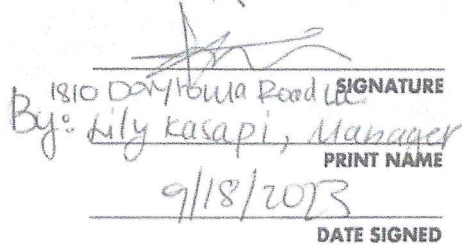 1810 Daytona Road LLC
SIGNATURE
By: Lily Kasapi, Manager
PRINT NAME
9/18/2023
DATE SIGNED